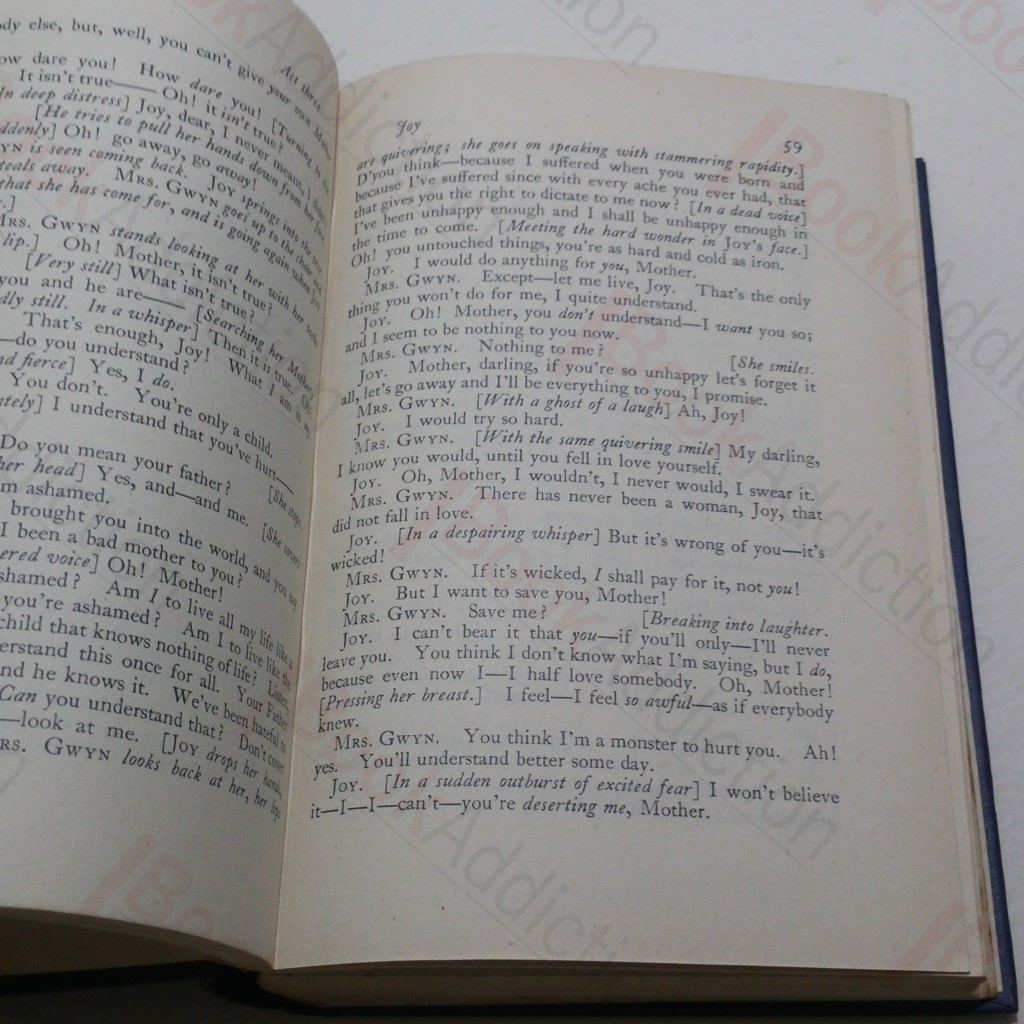 dy else, but, well, you can't give your own Mother
Act three
ow dare you! How dare you! [Turning to the
It isn't true—— Oh! it isn't true!
In deep distress] Joy, dear, I never meant, I didn't
[He tries to pull her hands down from her face.
ddenly] Oh! go away, go away!
YN is seen coming back. JOY springs into the
teals away. MRS. GWYN goes up to the chair
that she has come for, and is going again when JOY
.]
MRS. GWYN stands looking at her with her teeth
lip.] Oh! Mother, it isn't true?
[Very still] What isn't true?
you and he are—— [Searching her Mother's
dly still. In a whisper] Then it is true. Oh!
That's enough, Joy! What I am is my
—do you understand?
nd fierce] Yes, I do.
You don't. You're only a child.
ately] I understand that you've hurt——
[She stops.
Do you mean your father?
her head] Yes, and—and me. [She covers
m ashamed.
brought you into the world, and you say
I been a bad mother to you?
ered voice] Oh! Mother!
shamed? Am I to live all my life like a
you're ashamed? Am I to live like the
child that knows nothing of life? Listen,
erstand this once for all. Your Father
nd he knows it. We've been hateful to
Can you understand that? Don't cover
—look at me. [JOY drops her hands,
RS. GWYN looks back at her, her lips
Joy 59
are quivering; she goes on speaking with stammering rapidity.]
D'you think—because I suffered when you were born and
because I've suffered since with every ache you ever had, that
that gives you the right to dictate to me now? [In a dead voice]
I've been unhappy enough and I shall be unhappy enough in
the time to come. [Meeting the hard wonder in JOY's face.]
Oh! you untouched things, you're as hard and cold as iron.
JOY. I would do anything for you, Mother.
MRS. GWYN. Except—let me live, Joy. That's the only
thing you won't do for me, I quite understand.
JOY. Oh! Mother, you don't understand—I want you so;
and I seem to be nothing to you now.
MRS. GWYN. Nothing to me? [She smiles.
JOY. Mother, darling, if you're so unhappy let's forget it
all, let's go away and I'll be everything to you, I promise.
MRS. GWYN. [With a ghost of a laugh] Ah, Joy!
JOY. I would try so hard.
MRS. GWYN. [With the same quivering smile] My darling,
I know you would, until you fell in love yourself.
JOY. Oh, Mother, I wouldn't, I never would, I swear it.
MRS. GWYN. There has never been a woman, Joy, that
did not fall in love.
JOY. [In a despairing whisper] But it's wrong of you—it's
wicked!
MRS. GWYN. If it's wicked, I shall pay for it, not you!
JOY. But I want to save you, Mother!
MRS. GWYN. Save me? [Breaking into laughter.
JOY. I can't bear it that you—if you'll only—I'll never
leave you. You think I don't know what I'm saying, but I do,
because even now I—I half love somebody. Oh, Mother!
[Pressing her breast.] I feel—I feel so awful—as if everybody
knew.
MRS. GWYN. You think I'm a monster to hurt you. Ah!
yes. You'll understand better some day.
JOY. [In a sudden outburst of excited fear] I won't believe
it—I—I—can't—you're deserting me, Mother.
BookAddiction